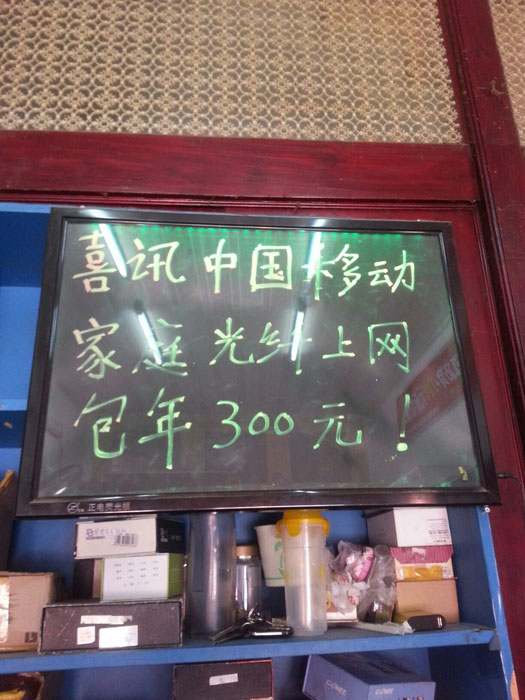 喜讯中国移动
家庭光纤上网
包年300元！